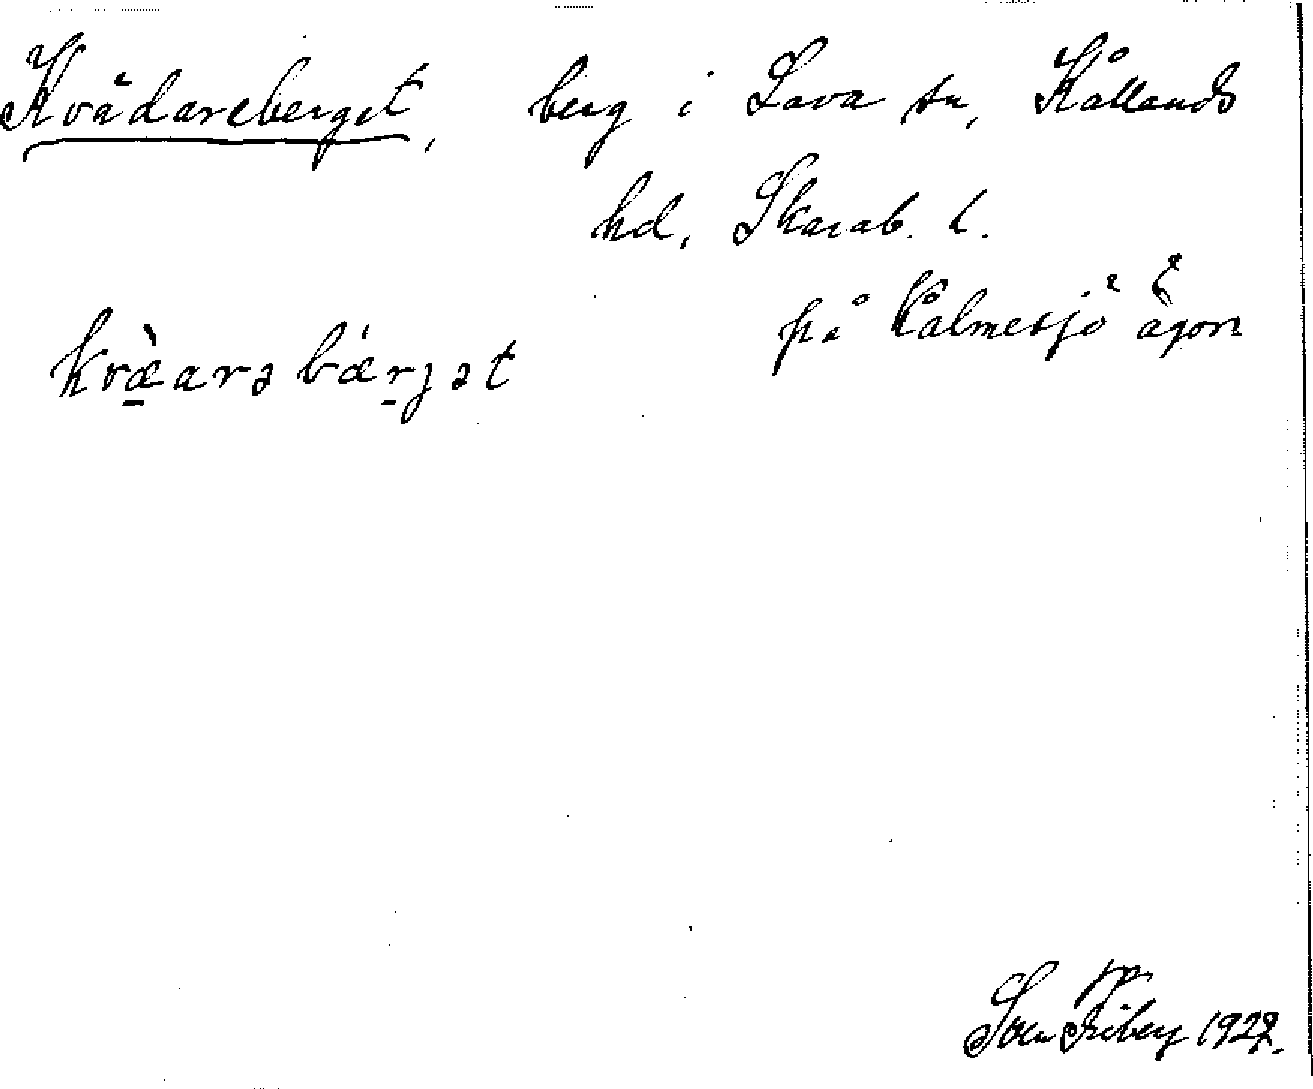 Kvädareberget, berg i Lava sn, Kållands
hd, Skarab. l.
på Kålmesjö ägor
kvæ̀arəbǽrjət
Sven Friberg 1927.